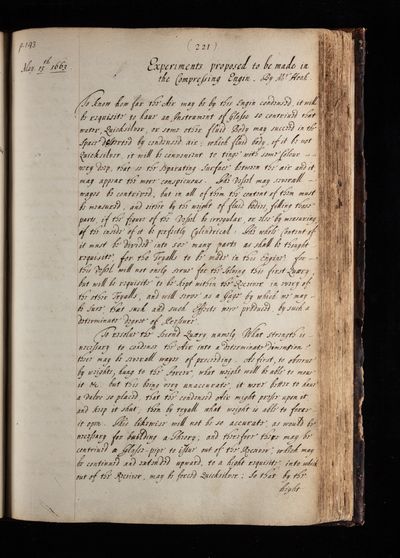 p. 193
(221)
May. 13th 1663
Experiments proposed to be made in
the Compressing Engin. By Mr Hook.
To know how far the Air may be by this Engin condensed, it will
be requisite to have an Instrument of Glasse so contrived that
water, Quicksilver, or some other fluid Body may succeed in the
Space deserted by condensed air; which fluid body, if it be not
Quicksilver, it will be convenient to tinge with some Colour
very deep, that so the Separating Surface between the air and it
may appear the more conspicuous. This Vessel may severall
wayes be contrived, but in all of them the content of them must
be measured, and either by the weight of fluid bodies, filling those
parts if the figure of the Vessel be irregular, or else by measuring
of the inside of it be perfectly Cylindrical. The whole Content of
it must be divided into soe many parts as shall be thought
requisite for the Tryalls to be made in this Engine: for
this Vessel will not onely serve for the Solving this first Quæry,
but will be requisite to be kept within the Receiver in every of
the other Tryalls, and will serve as a Gage by which we may
be sure that such and such Effects were produced by such a
determinate degree of Pressure.
To resolve the Second Quæry namely What Strength is
necessary to condense the Air into a determinate Dimension
there may be severall wayes of proceeding. As first, to observe
by weights, hung to the Screw, what weight will be able to move
it &c. but this being very unaccurate, it were better to have
a Valve so placed, that the condensed Air might presse upon it
and keep it shut, then by tryall what weight is able to force
it open. This likewise will not be so accurate, as would be
necessary for building a Theory; and therefore there may be
contrived a Glasse-pipe to issue out of the Receiver; which may
be continued and extended upward, to a hight requisite: into which
out of the Receiver, may be forced Quicksilver; So that by the
hight